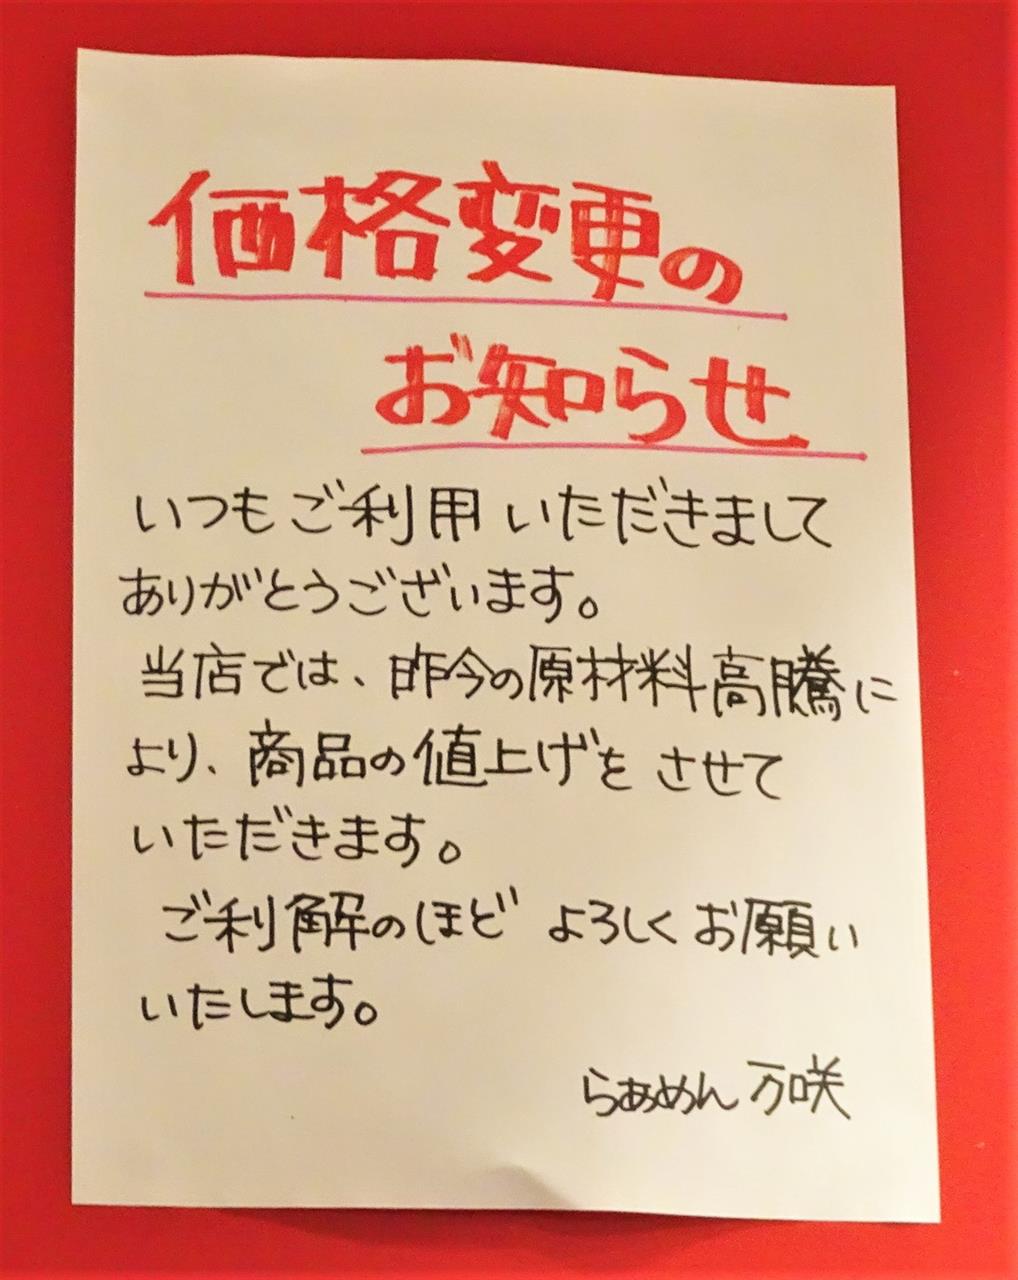 価格変更の
お知らせ
いつもご利用いただきまして
ありがとうございます。
当店では、昨今の原材料高騰に
より、商品の値上げをさせて
いただきます。
ご利解のほどよろしくお願い
いたします。
らぁめん万咲